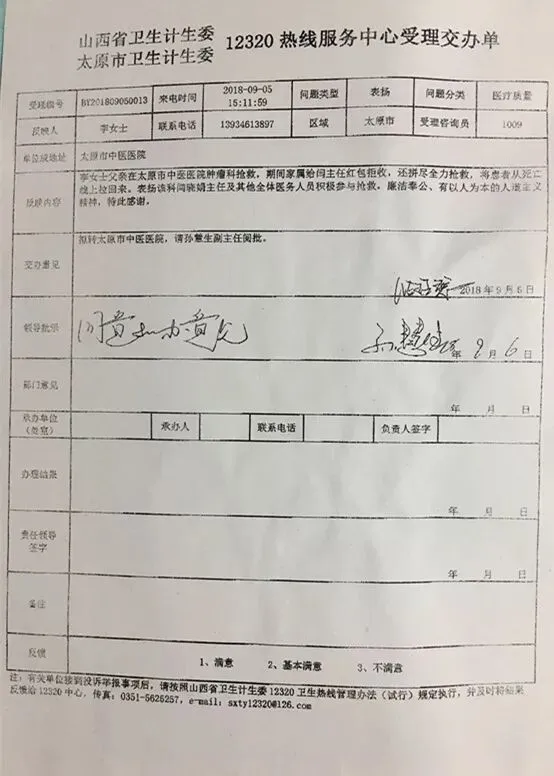 山西省卫生计生委
太原市卫生计生委
12320热线服务中心受理交办单
受理编号 BY201809050013 来电时间 2018-09-05 15:11:59 问题类型 表扬 问题分类 医疗质量
反映人 李女士 联系电话 13934613897 区域 太原市 受理咨询员 1009
单位或地址 太原市中医医院
反映内容
李女士父亲在太原市中医医院肿瘤科抢救,期间家属给闫主任红包拒收,还拼尽全力抢救,将患者从死亡
线上拉回来。表扬该科闫晓娟主任及其他全体医务人员积极参与抢救,廉洁奉公、有以人为本的人道主义
精神,特此感谢。
交办意见
拟转太原市中医医院,请孙慧生副主任阅批。
2018年9月6日
领导批示
同意拟办意见
孙慧生
年9月6日
部门意见
年 月 日
承办单位(处室) 承办人 联系电话 负责人签字
办理结果
年 月 日
责任领导
签字
年 月 日
备注
反馈
1、满意 2、基本满意 3、不满意
注:有关单位接到投诉举报事项后,请按照山西省卫生计生委12320卫生热线管理办法(试行)规定执行,并及时将结果
反馈给12320中心,传真:0351-5626257,e-mail:sxty12320@126.com